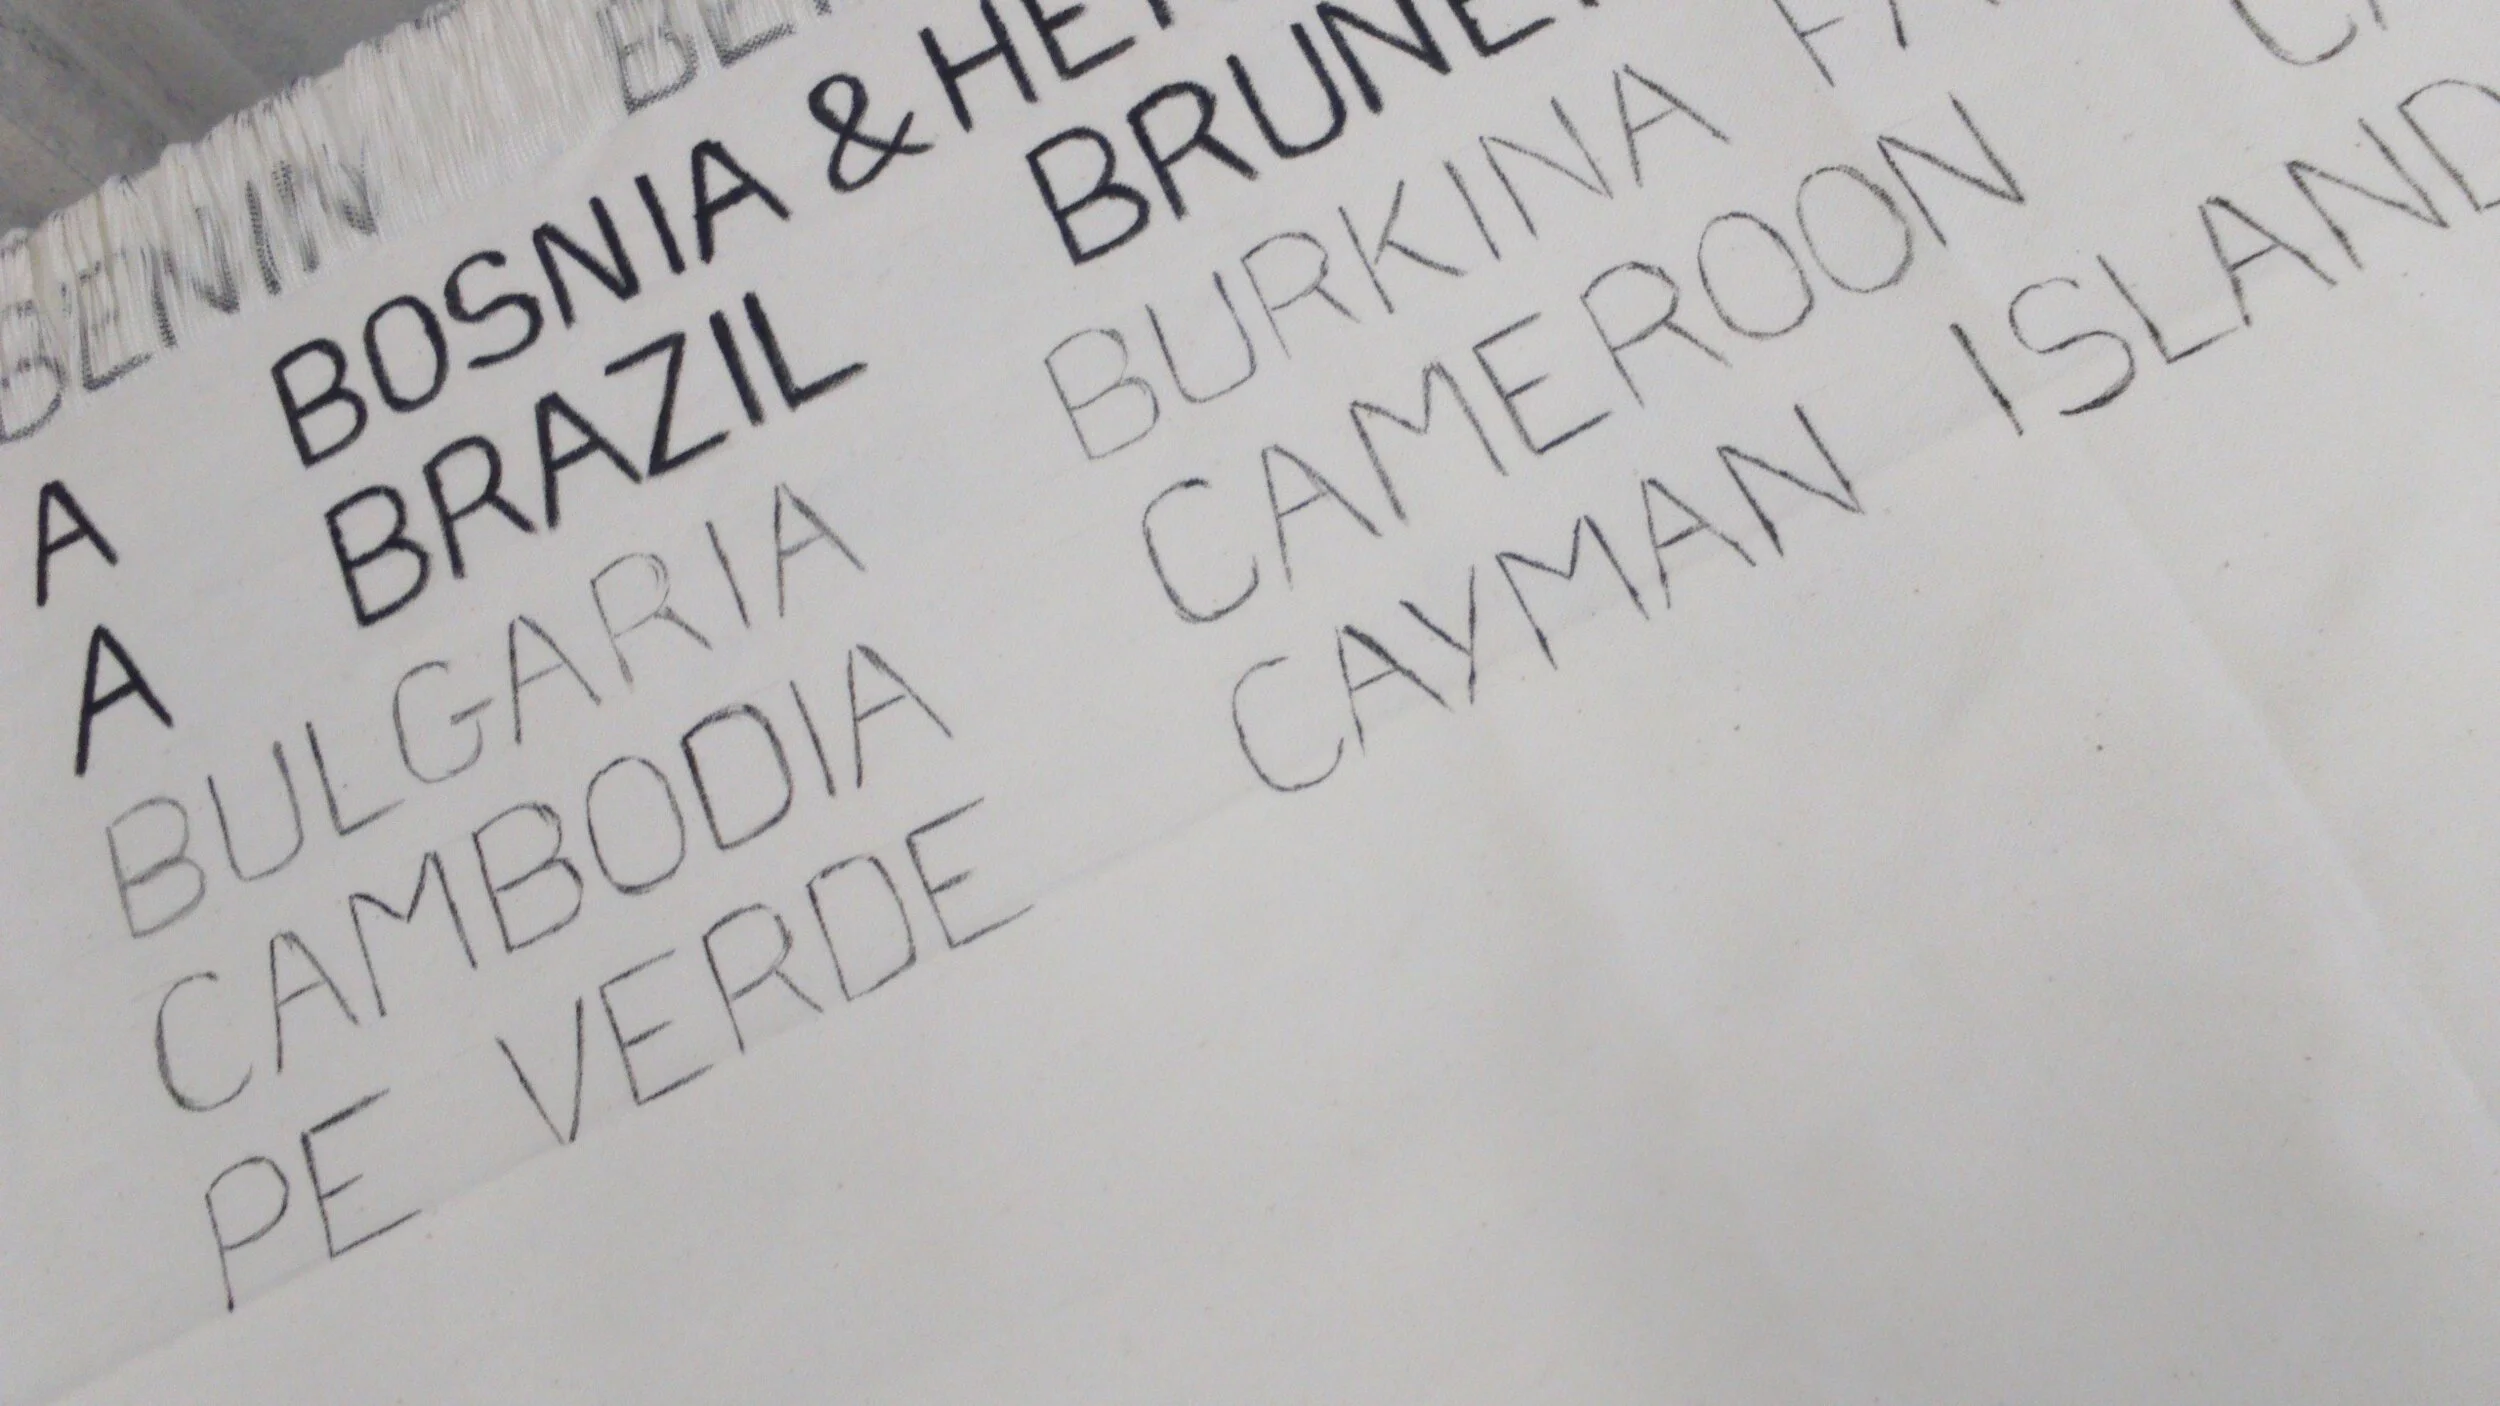 BENIN BE
A BOSNIA & HE
A BRAZIL BRUNE
BULGARIA BURKINA FA
CAMBODIA CAMEROON CA
PE VERDE CAYMAN ISLAND